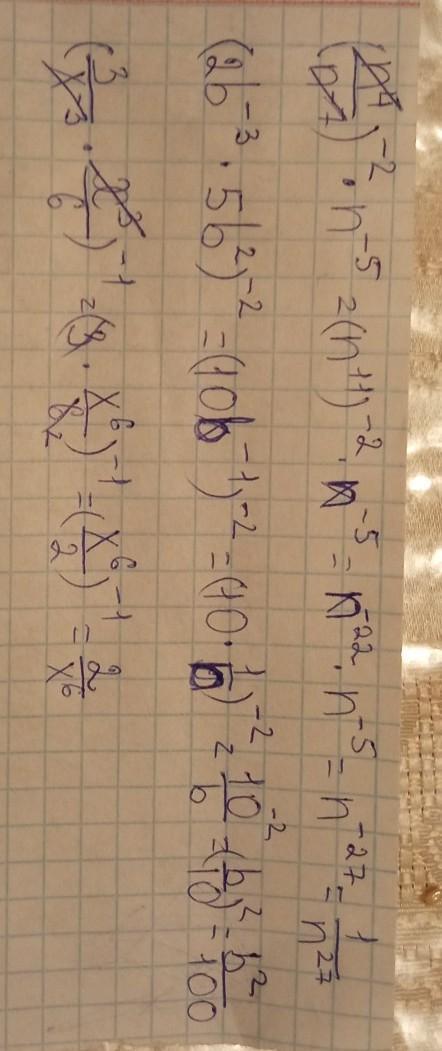 (n⁴/n⁻⁷)⁻² · n⁻⁵ = (n¹¹)⁻² · n⁻⁵ = n⁻²² · n⁻⁵ = n⁻²⁷ = 1/n²⁷
(2b⁻³ · 5b²)⁻² = (10b⁻¹)⁻² = (10 · 1/b)⁻² = 10/b⁻² = (b/10)² = b²/100
(3/x⁻³ · x³/6)⁻¹ = (3 · x⁶/6₂)⁻¹ = (x⁶/2)⁻¹ = 2/x⁶